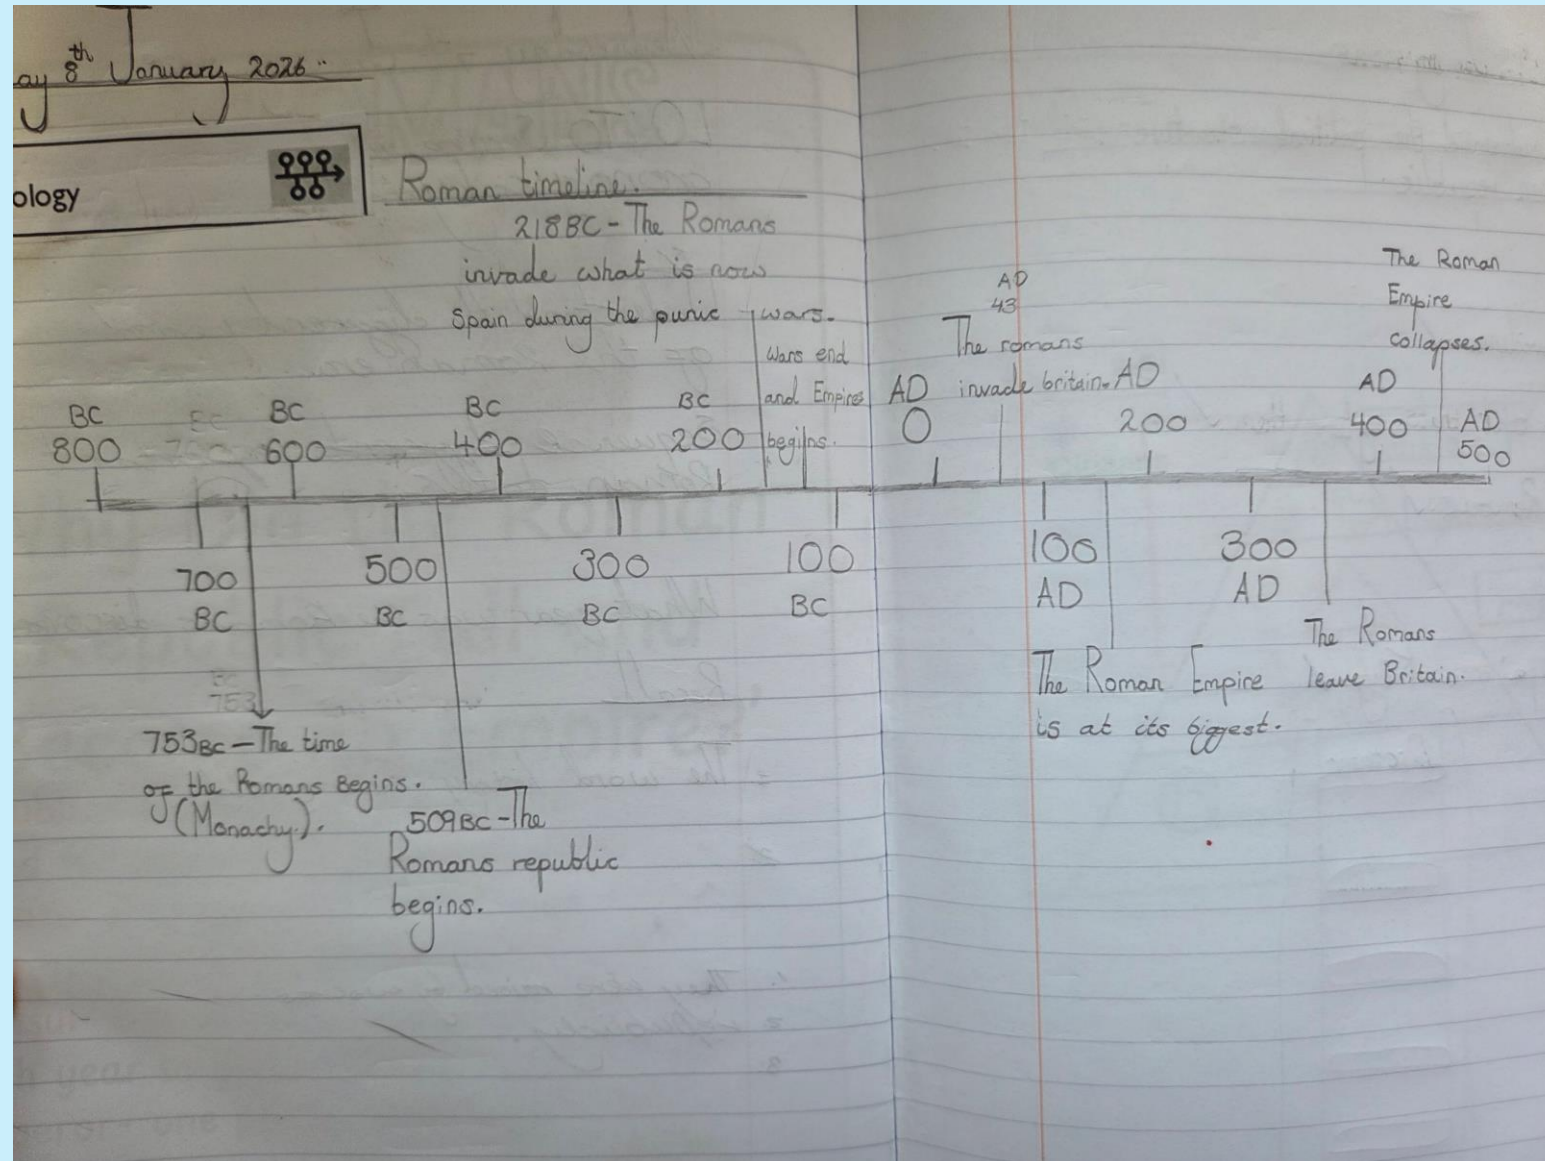 ay 8th January 2026
ology
Roman timeline.
218BC - The Romans
invade what is now
Spain during the punic wars.
Wars end
and Empires
begins.
AD
43
The romans
invade britain.
The Roman
Empire
collapses.
BC BC BC BC AD AD AD AD
800 600 400 200 0 200 400 500
700 500 300 100 100 300
BC BC BC BC AD AD
753BC - The time
of the Romans Begins.
(Monachy.).
509BC - The
Romans republic
begins.
The Roman Empire
is at its biggest.
The Romans
leave Britain.